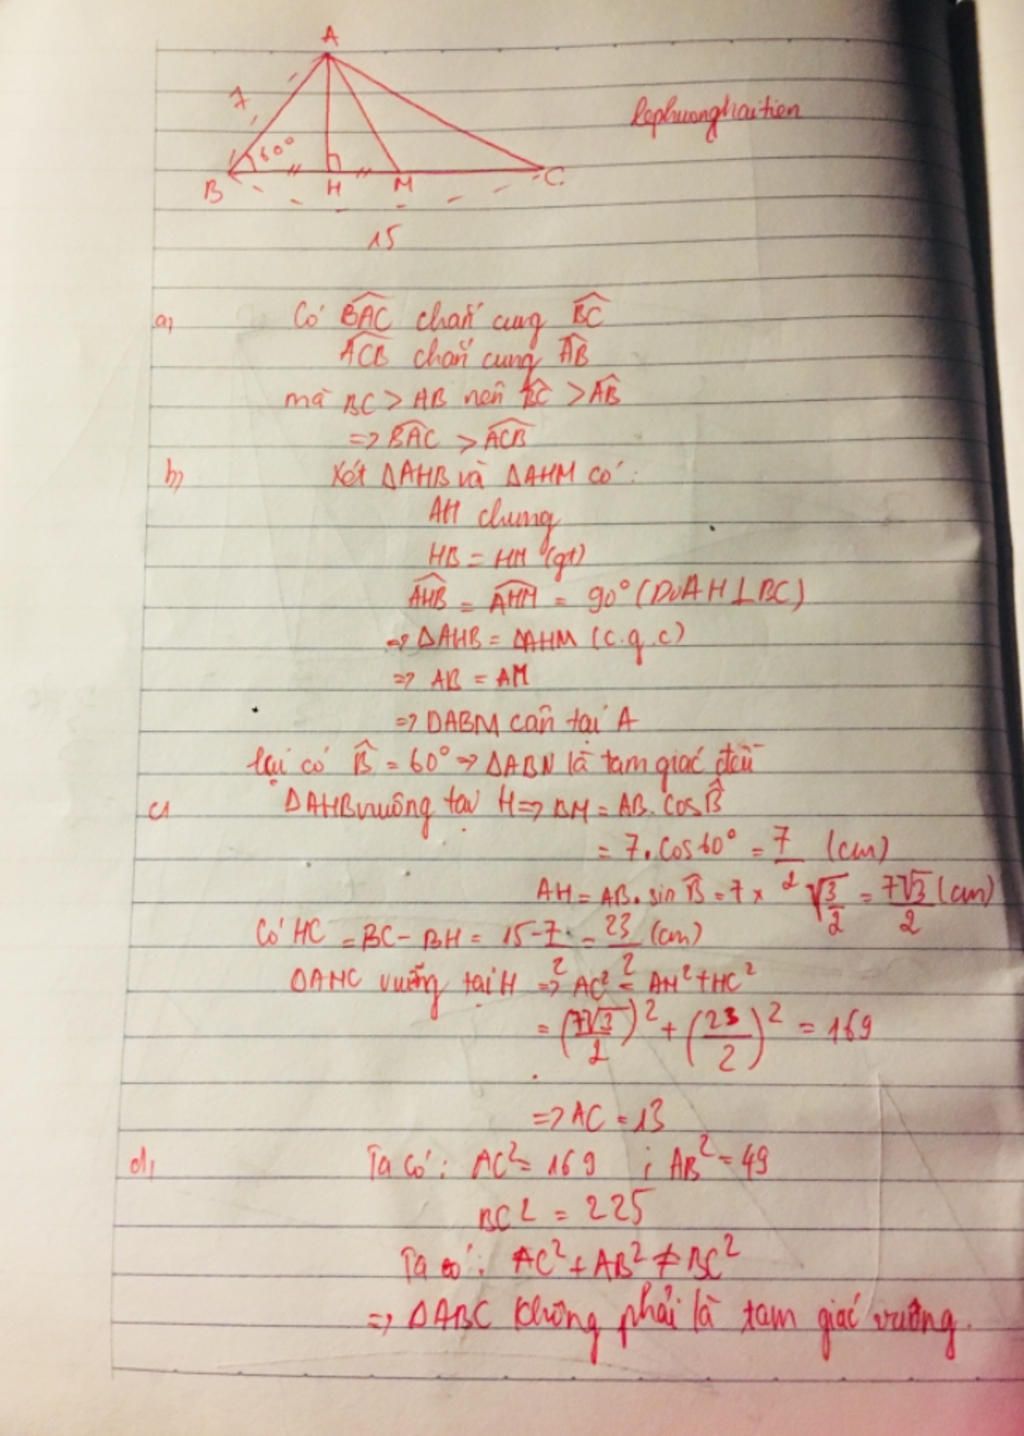 A
7
60°
B
H
M
C
15
lephuonghaitien
a, Có BAC chắn cung BC
ACB chắn cung AB
mà BC > AB nên BC > AB
=> BAC > ACB
b, Xét ΔAHB và ΔAHM có:
AH chung
HB = HM (gt)
AHB = AHM = 90° (Do AH ⊥ BC)
=> ΔAHB = ΔAHM (c.g.c)
=> AB = AM
=> ΔABM cân tại A
lại có B = 60° => ΔABM là tam giác đều
c, ΔAHB vuông tại H => BH = AB. cos B
= 7. cos 60° = 7/2 (cm)
AH = AB. sin B = 7 x √3/2 = 7√3/2 (cm)
Có HC = BC - BH = 15 - 7/2 = 23/2 (cm)
ΔAHC vuông tại H => AC² = AH² + HC²
= (7√3/2)² + (23/2)² = 169
=> AC = 13
d, Ta có: AC² = 169 ; AB² = 49
BC² = 225
Ta có: AC² + AB² ≠ BC²
=> ΔABC không phải là tam giác vuông.